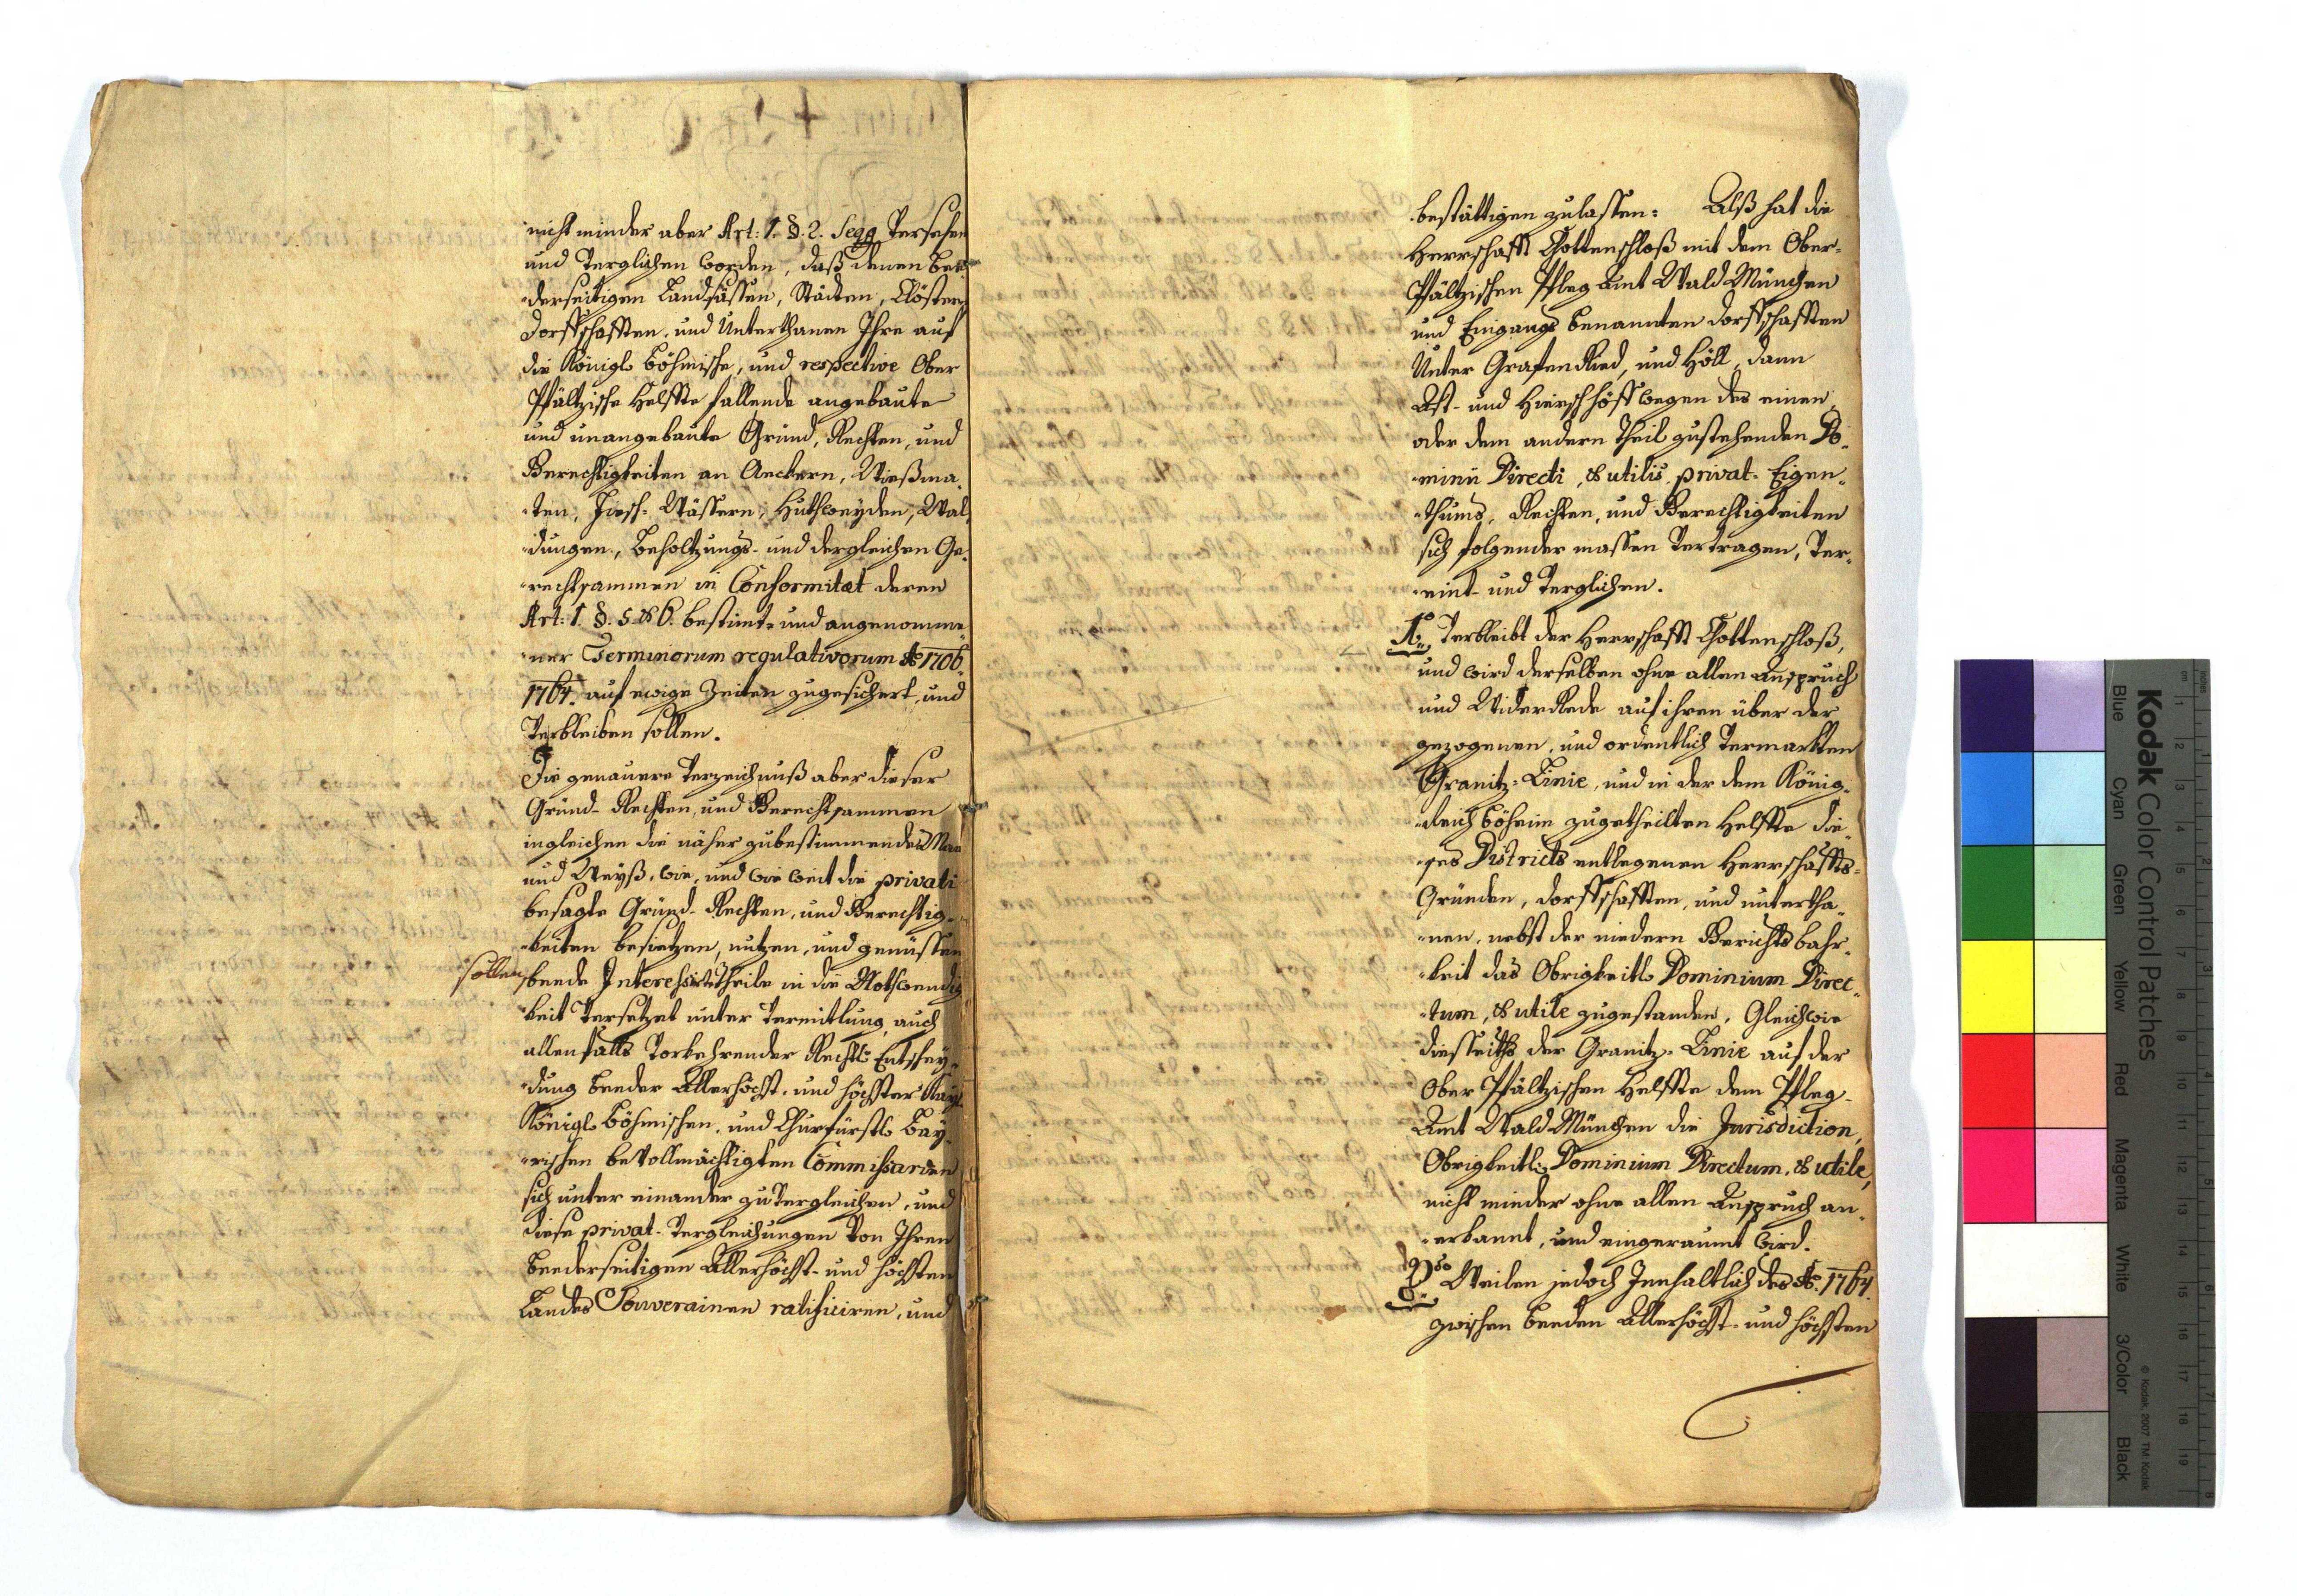 nicht minder aber Art: 1. §. 2. seqq Versehen
und Verglichen worden, daß denen bee„
„derseitigen Landsässen, Städten, Clöstern,
Dorffschafften, und Unterthanen Ihre auf
die Königl. Böhmische, und respective Ober
Pfältzische Helffte fallende angebaute
und unangebaute Gründ, Rechten, und
Berechtigkeiten an Aeckern, Wießma„
„ten, Fisch-Wässern, Huthweyden, Wal„
„dungen, Beholtzungs- und dergleichen Ge„
„rechtsammen in Conformitæt deren
Art: 1. §. 5. & 6. bestimt- und angenomme„
„ner Terminorum regulativorum Aõ 1706.
1764. auf ewige Zeiten zugesichert, und
Verbleiben sollen.
Die genauere Verzeichnuß aber dieser
Gründ- Rechten, und Berechtsammen
ingleichen die näher zubestimmende Maas
und Weyß, wie, und wie weit die privati
besagte Gründ- Rechten, und Berechtig„
„keiten besietzen, nutzen, und genüssen
sollen, beede Interessirte Theile in die Nothwendig
„keit Versetzet unter Vermitlung, auch
allenfalls Vorkehrender Rechtl. Entschey„
„dung beeder Allerhöchst- und höchster Kay.
Königl. Böhmischen, und Churfürstl. Bay„
„rischen beVollmächtigten Commissarien
sich unter einander zu Vergleichen, und
diese privat-Vergleichungen Von Ihren
beederseitigen Allerhöchst- und höchsten
Landes Souverainen ratificiren, und
bestättigen zulassen: Alß hat die
Herrschafft Chottenschloß mit dem Ober„
Pfältzischen Pfleg Amt Wald München
und Eingangs benannten Dorffschafften
Unter Grafen Ried, und Höll, dann
Ast- und Hirschhöff wegen des einen,
oder dem andern Theil zustehenden Do„
„minii Directi, & utilis, privat-Eigen„
„thums, Rechten, und Berechtigkeiten
sich folgender massen Vertragen, Ver„
„eint- und Verglichen.
1o Verbleibt der Herrschafft Chottenschloß,
und wird derselben ohne allen Anspruch
und WiderRede auf ihren über der
gezogenen, und ordentlich Vermarkten
Granitz-Linie, und in der dem König„
„reich Böheim zugetheilten Helffte die„
„ses Districts entlegenen Herrschaffts-
Gründen, Dorffschafften, und untertha„
„nen, nebst der niedern Gerichtsbahr„
„keit das Obrigkeitl. Dominium Direc„
„tum, & utile zugestanden, Gleichwie
diesseiths der Granitz-Linie auf der
Ober Pfältzischen Helffte dem Pfleg-
Amt Wald München die Jurisdiction,
Obrigkeitl: Dominium Directum, & utile,
nicht minder ohne allen Anspruch an„
„erkannt, und eingeraumt wird.
2do Weilen jedoch Innhaltlich des Aõ. 1764.
zwischen beeden Allerhöchst- und höchsten
Kodak Color Control Patches
Blue Cyan Green Yellow Red Magenta White 3/Color Black
© Kodak, 2007 TM: Kodak